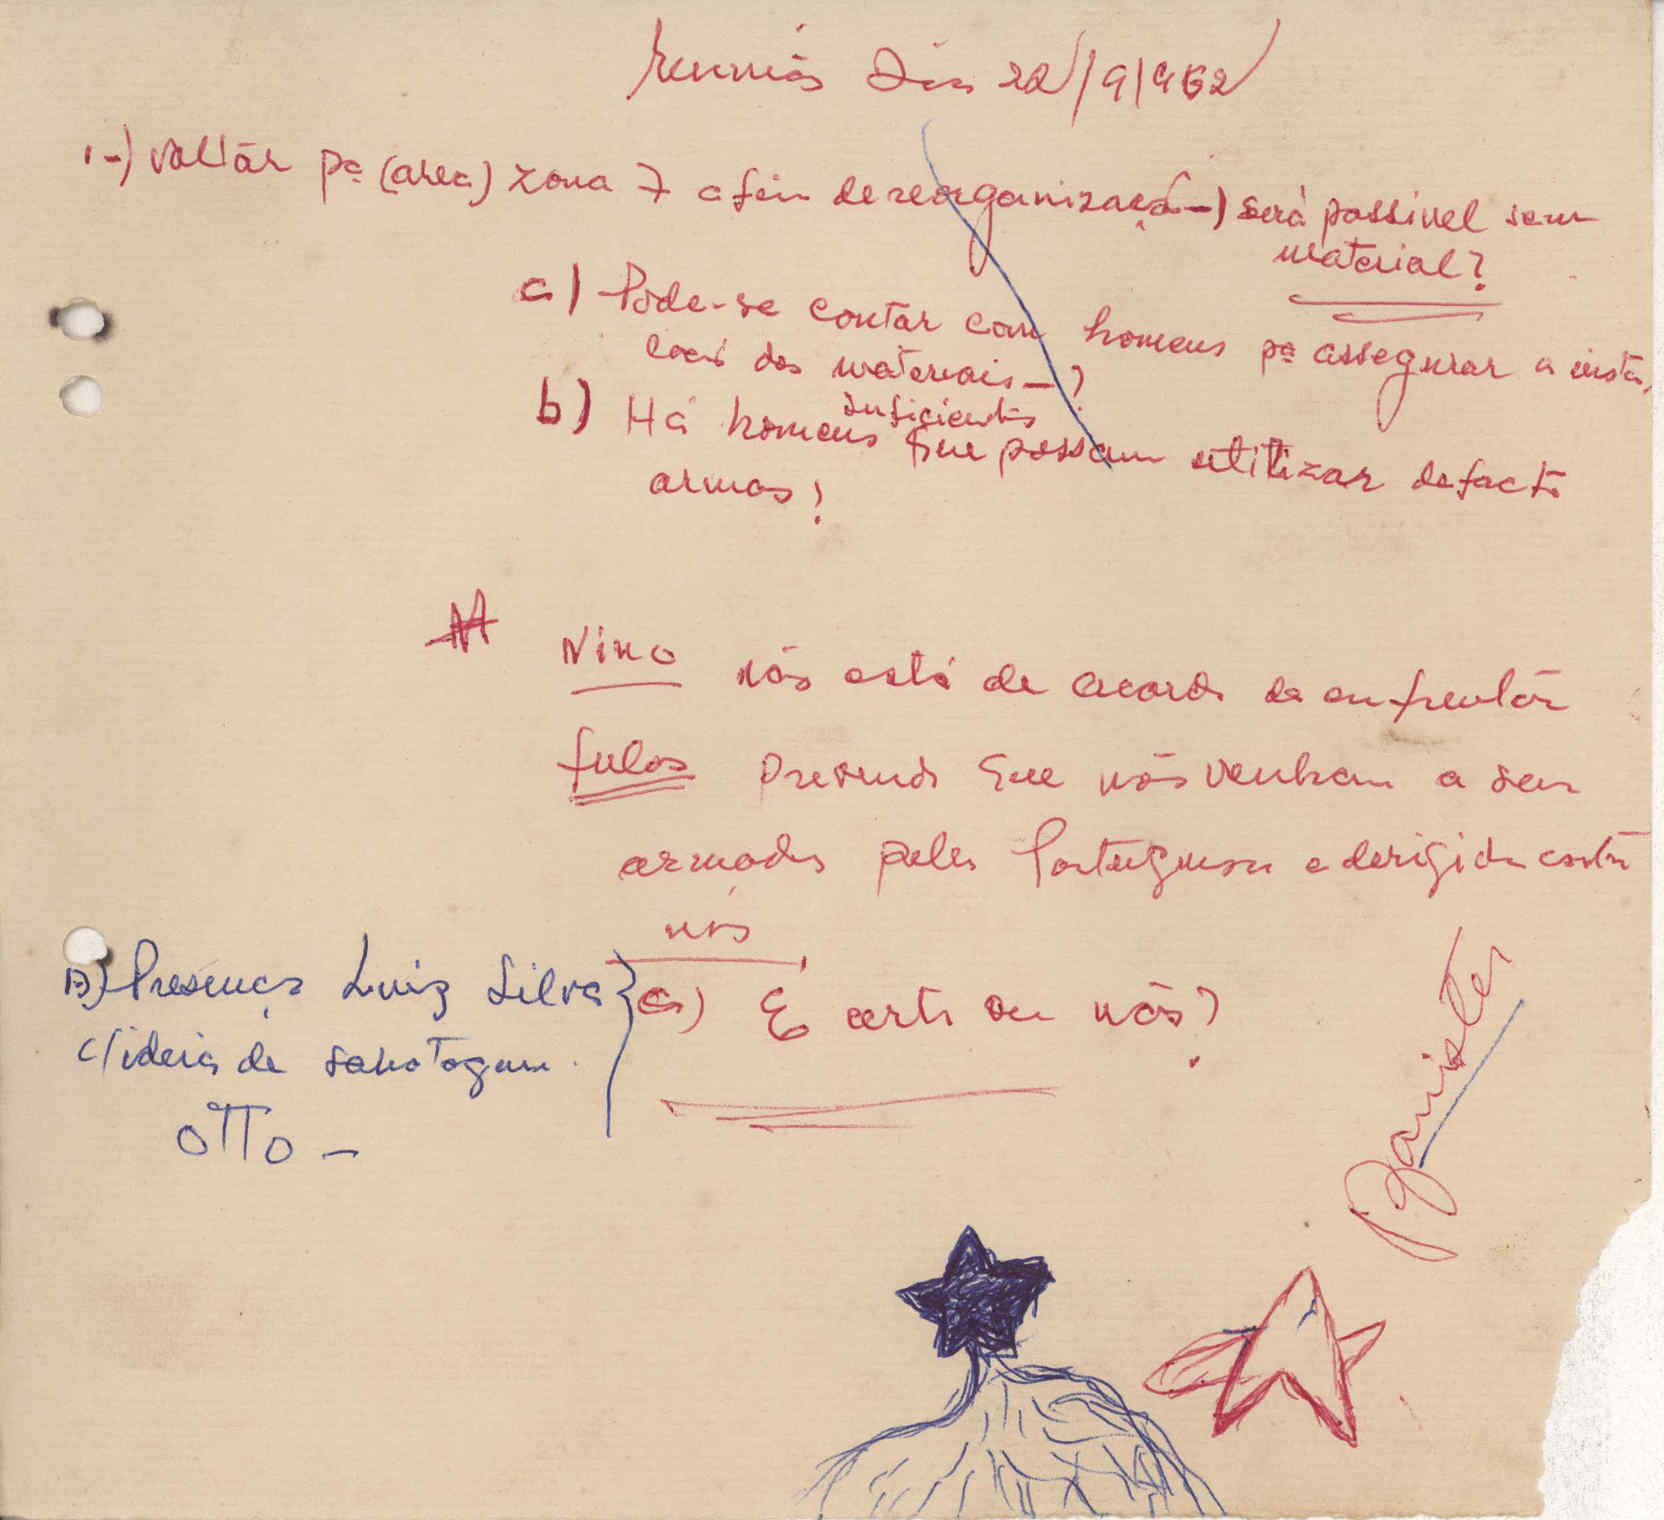 Reunião Dia 22/9/962
1-) Voltar pª (area) zona 7 a fim de reorganização-) será possivel sem
material?
a) Pode-se contar com homens pª assegurar a insta-
lacã dos materiais-?
b) Há homens suficientes que possam utilizar de facto
armas?
Nino não está de acordo de enfrentar
fulas prevendo que não venham a ser
armados pelos Portugueses e dirigidos contra
nós
a) É certo ou não?
B) Presença Luiz Silva
c/ideia de sabotagem.
OTTO -